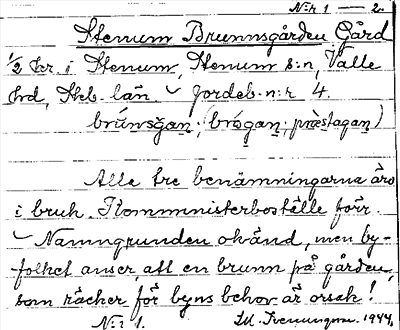 N:r 1 — 2.
Stenum Brunnsgården Gård
1/2 kr. i Stenum, Stenum s:n, Valle
hd, Skb. län. Jordeb. n:r 4.
brúnsgạn; (brógạn; præstagạn)
Alla tre benämningarna äro
i bruk. Kommministerboställe förr.
Namngrunden okänd, men by-
folket anser, att en brunn på gården,
som räcker för byns behov är orsak!
N:r 1. 1944.